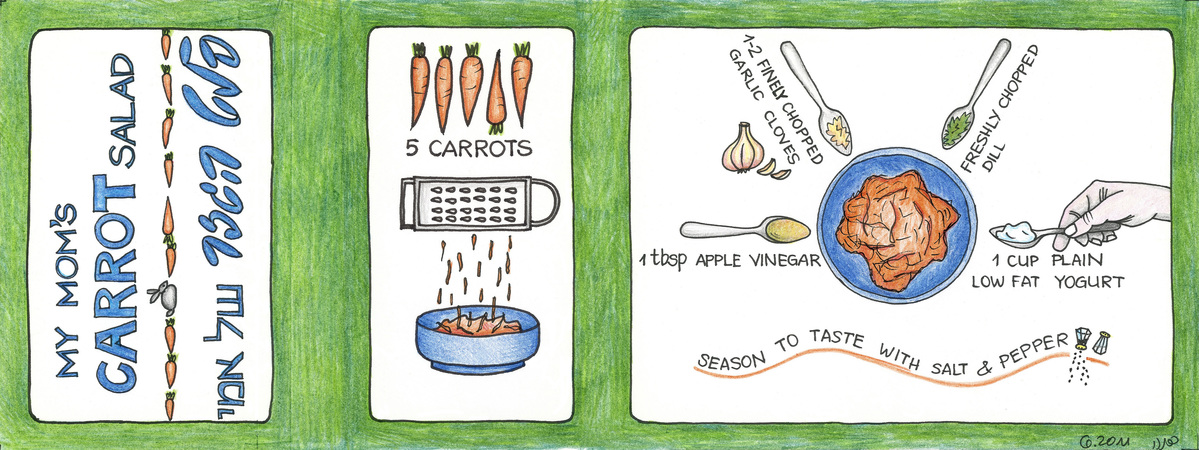 MY MOM'S
CARROT SALAD
סלט הגזר של אמי
5 CARROTS
1-2 FINELY CHOPPED
GARLIC CLOVES
FRESHLY CHOPPED
DILL
1 tbsp APPLE VINEGAR
1 CUP PLAIN
LOW FAT YOGURT
SEASON TO TASTE WITH SALT & PEPPER
2011